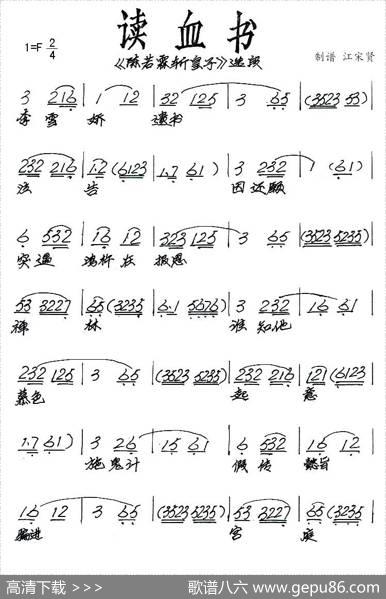 读血书
1=F 2/4
《陈若霖斩皇子》选段
制谱 江宋贤
3 216 | 1 12 | 32 125 | 3 65 | (3523 53)
李雪娇 遗书
232 216 | 1·2 (6123 | 1·7 61) | 3 232 | 1 (61)
泣告 因还愿
6 532 | 16 12 | 323 125 | 3 65 | (3523 5235)
突遇 报恩
53 3227 | 65 (3235 | 6·1 5676) | 3 232 | 16 61
禅林 谁知他
232 125 | 3 65 | (3523 5235) | 232 216 | 121 (6123
慕色 起意
1·7 61) | 3 26 | 15 61 | 6 532 | 16 12
施鬼计 假传懿旨
16 12 | 3 65 | (3523 5235) | 53 3227 | 65 (3235
骗进 宫庭
高清下载 >>>
歌谱八六 www.gepu86.com